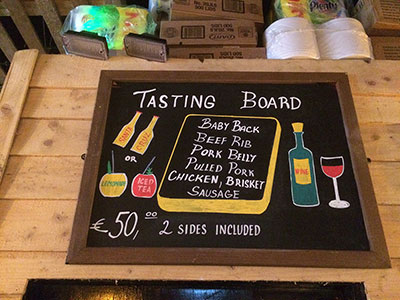 Plenty
TASTING BOARD
BABY BACK
BEEF RIB
PORK BELLY
PULLED PORK
CHICKEN, BRISKET
SAUSAGE
OR
LEMONADE
ICED
TEA
WINE
€50,00
2 SIDES INCLUDED